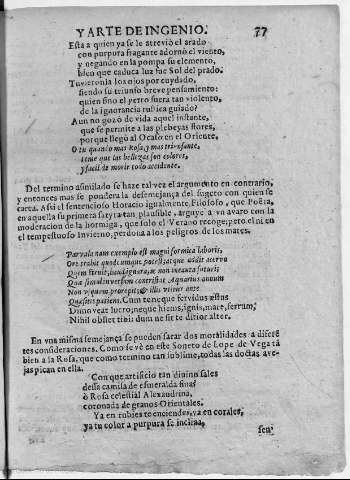 Y ARTE DE INGENIO. 77
Esta a quien ya se le atreviò el arado
con purpura fragante adornò el viento,
y negando en la pompa su elemento,
bien que caduca luz fue Sol del prado.
Tuvieronla los ojos por cuydado,
siendo su triunfo breve pensamiento:
quien sino el yerro fuera tan violento,
de la ignorancia rustica guiado?
Aun no gozò de vida aquel instante,
que se permite a las plebeyas flores,
porque llegò al Ocaso en el Oriente,
O tu quanto mas Rosa, y mas triunfante,
teme que las bellezas son colores,
y facil de morir todo accidente.
Del termino asimilado se haze tal vez el argumento en contrario,
y entonces mas se pondera la desemejança del sugeto con quien se
carea. Assi el sentencioso Horacio igualmente, Filosofo, que Poëta,
en aquella su primera satyra tan plausible, arguye a un avaro con la
moderacion de la hormiga, que solo el Verano recoge, pero el ni en
el tempestuoso Invierno, perdona a los peligros de los mares.
Parvula nam exemplo est magni formica laboris,
Ore trahit quodcumque potest, atque addit acervo
Quem struit, haud ignara, ac non incauta futuri;
Quæ simul inversum contristat Aquarius annum
Non usquam prorepit, & illis utitur ante
Quæsitis patiens. Cum te neque fervidus æstus
Dimoveat lucro; neque hiems, ignis, mare, ferrum,
Nihil obstet tibi dum ne sit te ditior alter.
En una misma semejança se pueden sacar dos moralidades a diferē
tes consideraciones. Como se vè en este Soneto de Lope de Vega tā
bien a la Rosa, que como termino tan sublime, todas las doctas ave-
jas pican en ella.
Con que artificio tan divino sales
dessa camisa de esmeralda fina
ò Rosa celestial Alexandrina,
coronada de granos Orientales.
Ya en rubies te enciendes, ya en corales,
ya tu color a purpura se inclina,
sen-